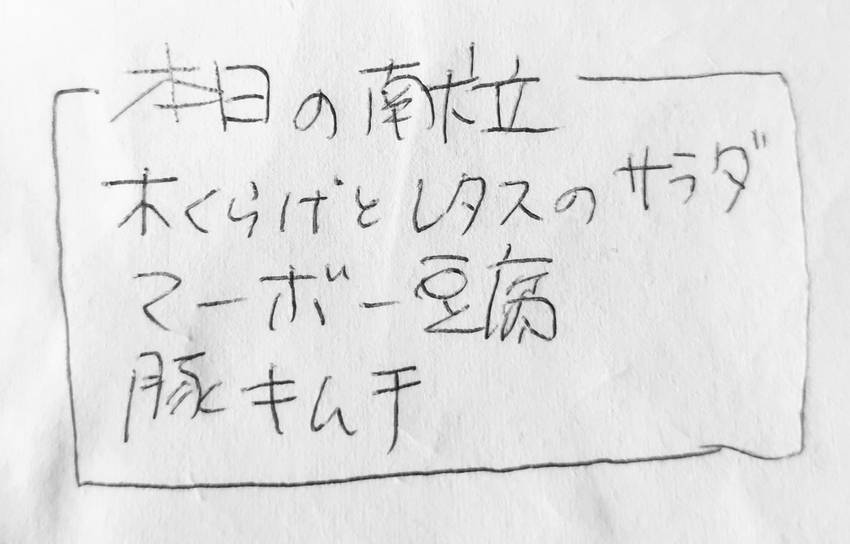 本日の献立
木くらげとレタスのサラダ
マーボー豆腐
豚キムチ